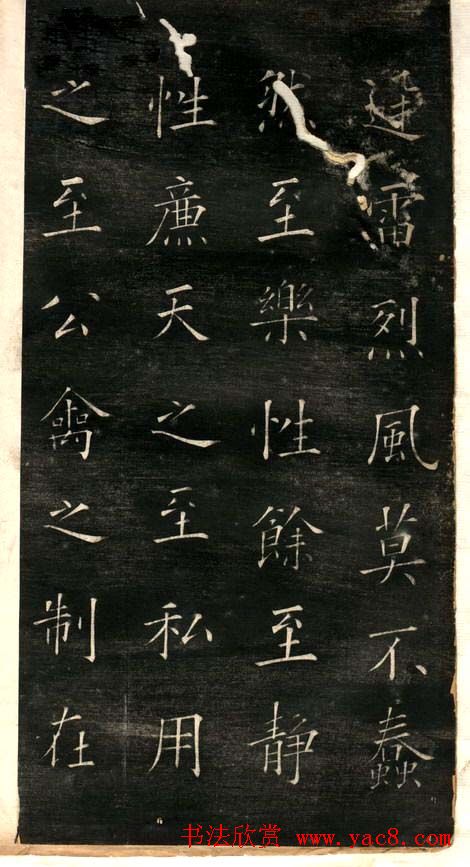 迅雷烈風莫不蠢
然至樂性餘至靜
性廉天之至私用
之至公禽之制在
书法欣赏 www.yac8.com